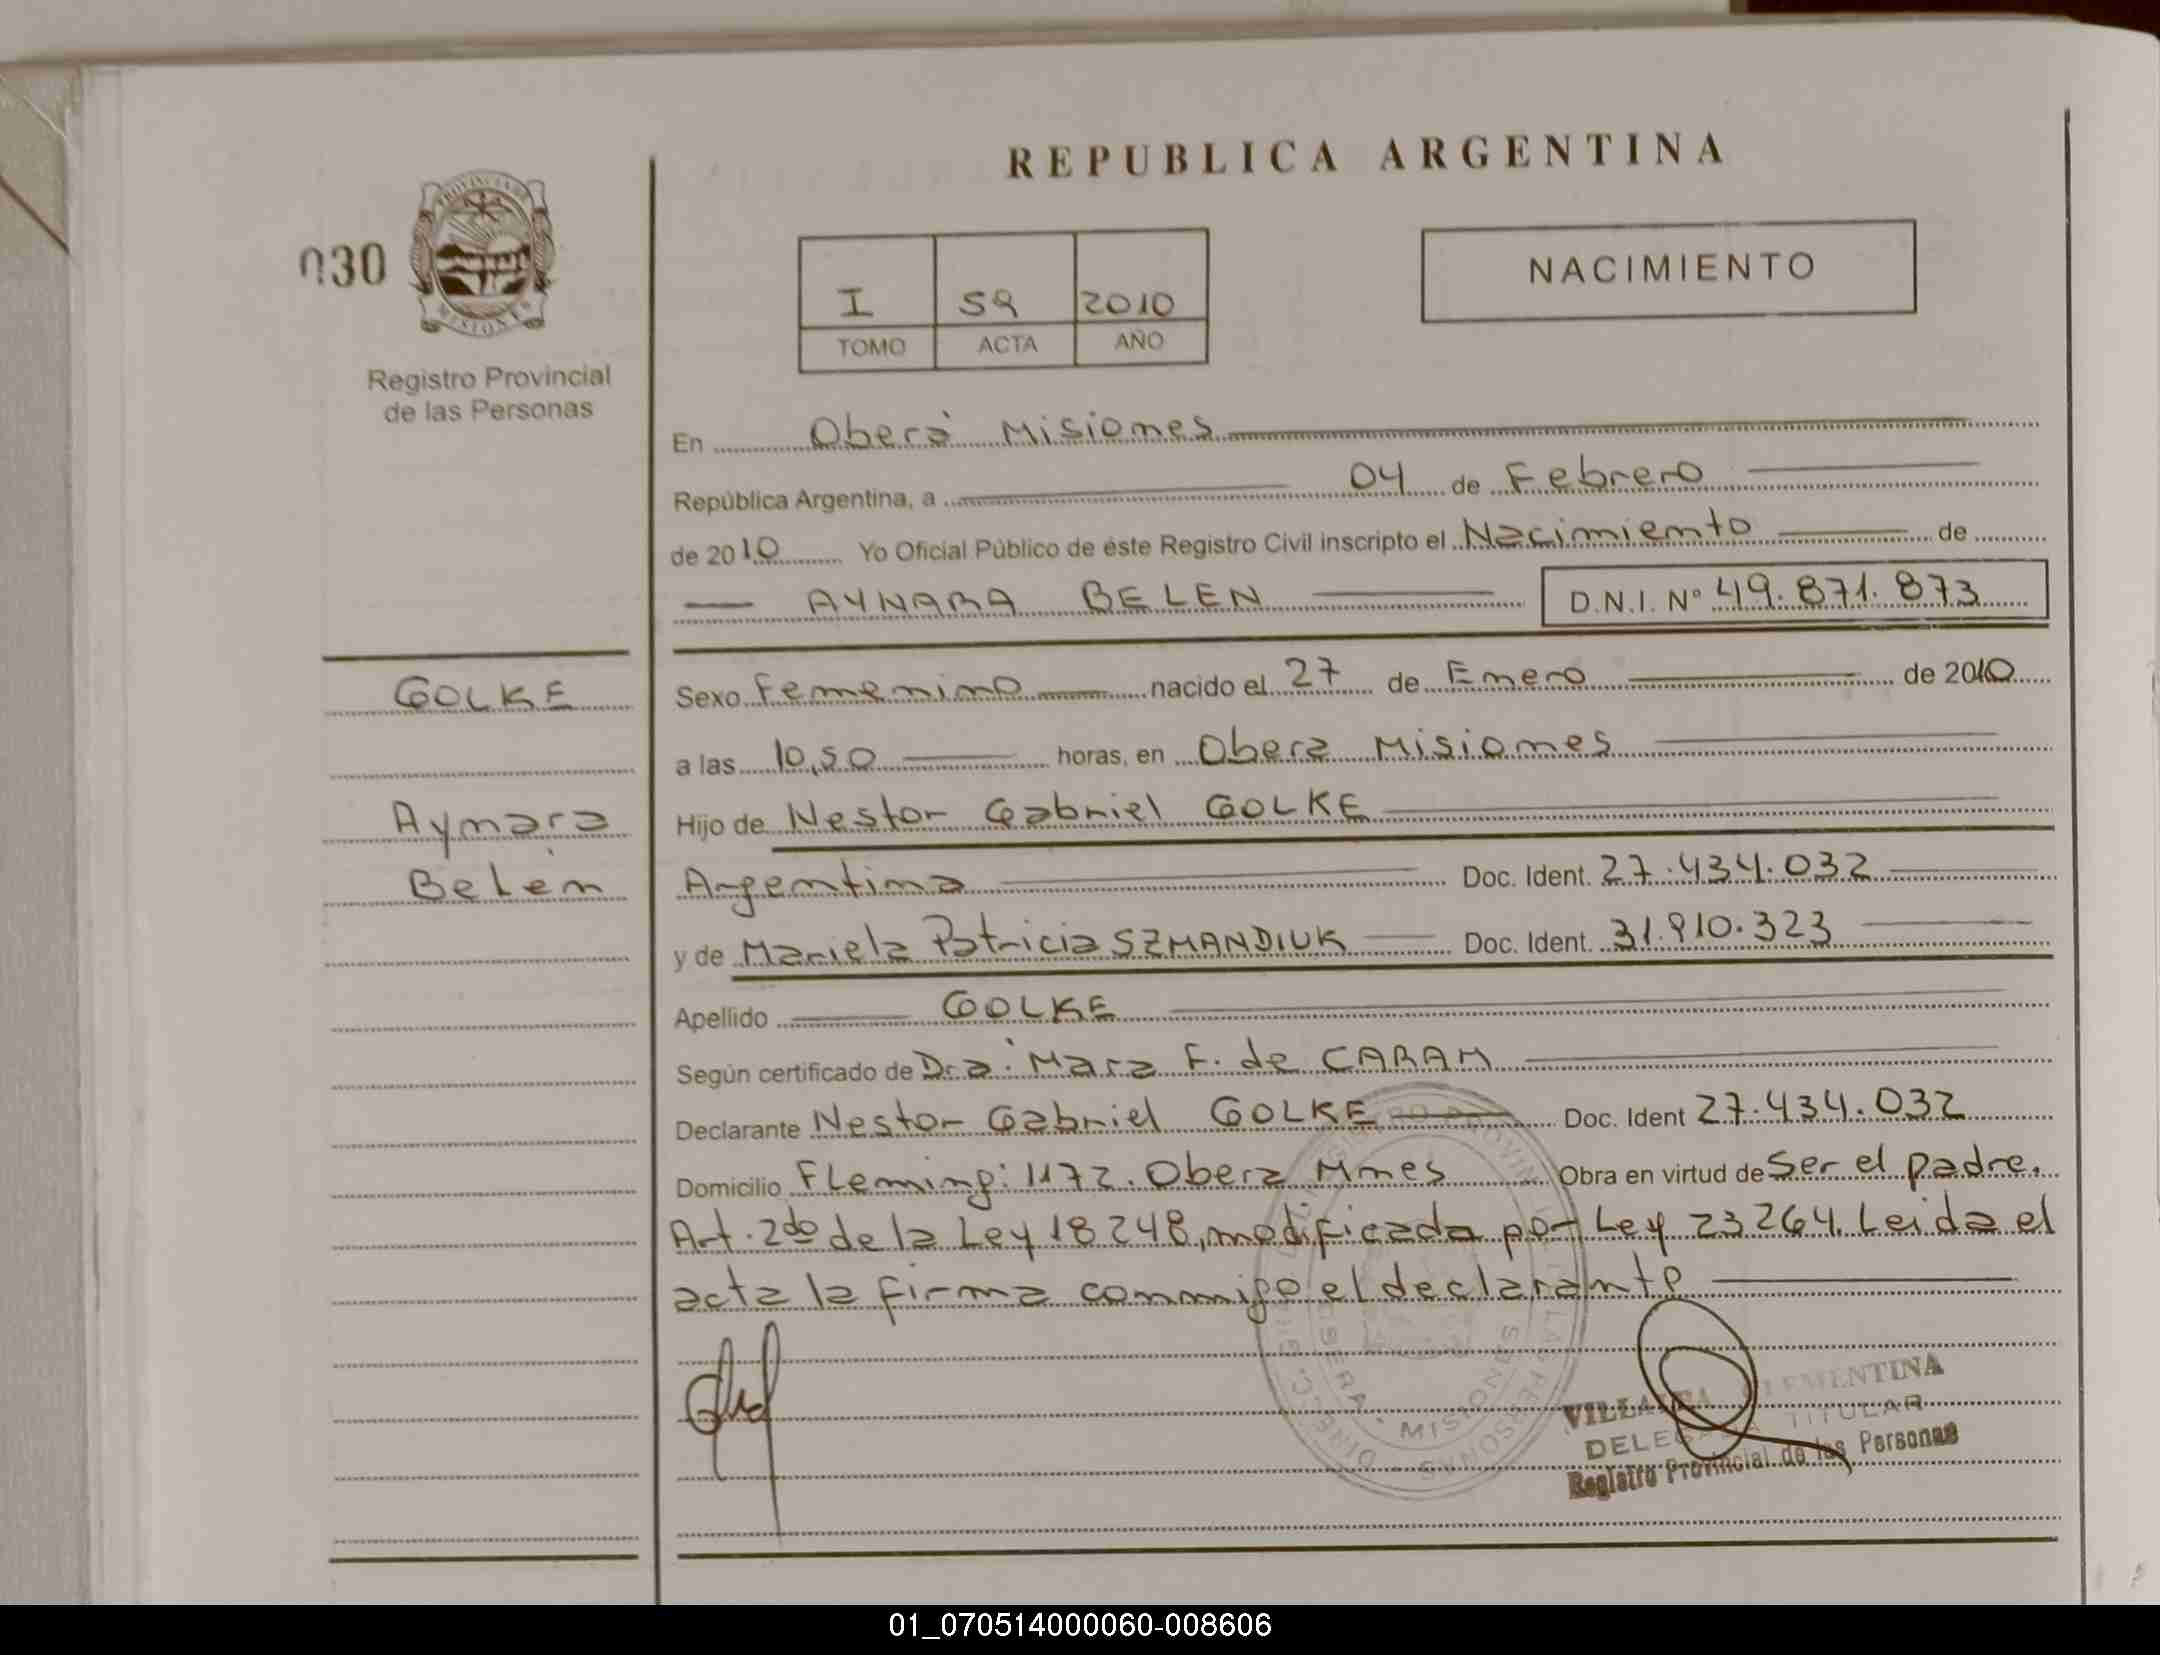 REPUBLICA ARGENTINA
030
PROVINCIA DE
MISIONES
Registro Provincial
de las Personas
I 59 2010
TOMO ACTA AÑO
NACIMIENTO
En Oberà Misiones
República Argentina, a 04 de Febrero
de 2010 Yo Oficial Público de éste Registro Civil inscripto el Nacimiento de
AYNARA BELEN D.N.I. Nº 49.871.873
GOLKE
Aynara
Belen
Sexo Femenino nacido el 27 de Enero de 2010
a las 10,50 horas, en Obera Misiones
Hijo de Nestor Gabriel GOLKE
Argentina Doc. Ident. 27.434.032
y de Mariela Patricia SZMANDIUK Doc. Ident. 31.910.323
Apellido GOLKE
Según certificado de Dra. Mara F. de CARAM
Declarante Nestor Gabriel GOLKE Doc. Ident 27.434.032
Domicilio Fleming: 1172. Obera Mnes Obra en virtud de Ser el padre.
Art. 2do de la Ley 18248, modificada por Ley 23264. Leida el
acta la firma conmigo el declarante
MISIONES
VILLALBA CLEMENTINA
DELEGADA TITULAR
Registro Provincial de las Personas
01_070514000060-008606